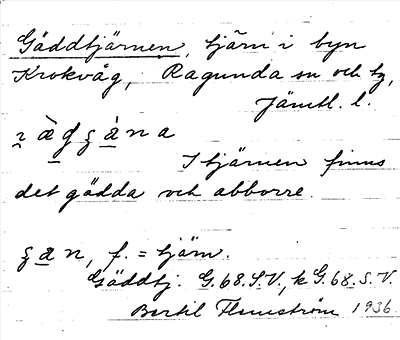 Gäddtjärnen, tjärn i byn
Krokvåg, Ragunda sn och tg,
Jämtl. l.
I tjärnen finns
det gädda och abborre.
f. = tjärn.
Gäddtj. G.68.S.V., k G.68.S.V.
Bertil Flemström 1936.